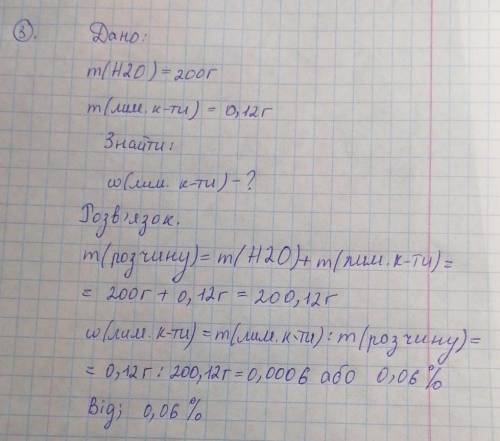 3.
Дано:
m(H2O) = 200г
m(лим. к-ти) = 0,12г
Знайти:
ω(лим. к-ти) - ?
Розв'язок.
m(розчину) = m(H2O) + m(лим. к-ти) =
= 200г + 0,12г = 200,12г
ω(лим. к-ти) = m(лим. к-ти) : m(розчину) =
= 0,12г : 200,12г = 0,0006 або 0,06%
Від; 0,06%